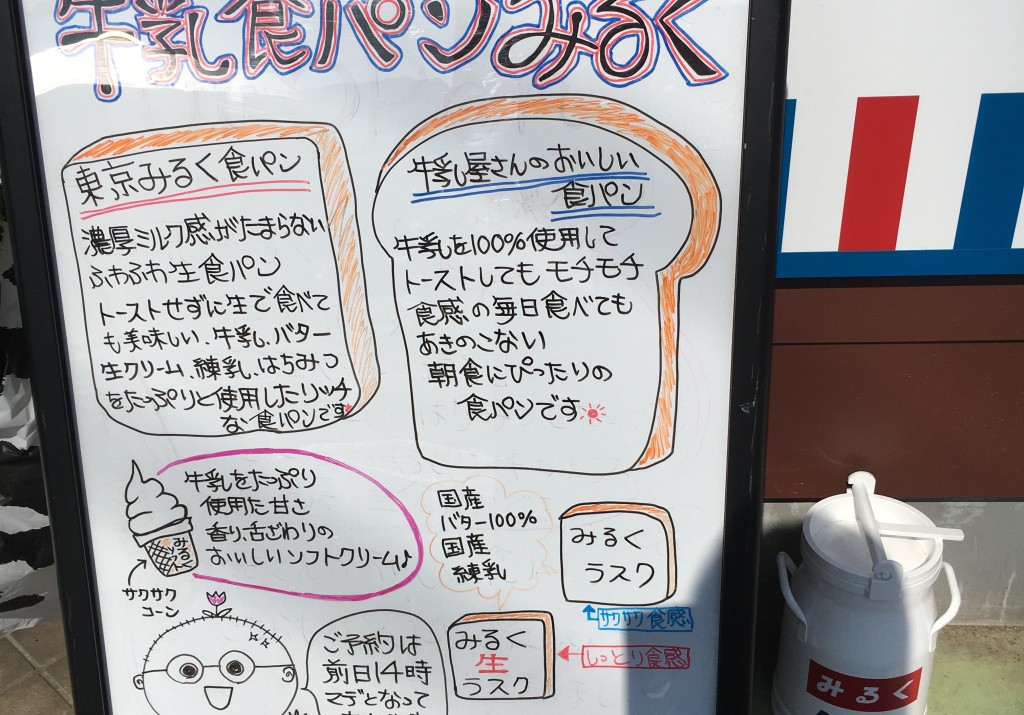 牛乳食パンみるく
東京みるく食パン
濃厚ミルク感がたまらない
ふわふわ生食パン
トーストせずに生で食べて
も美味しい、牛乳、バター
生クリーム、練乳、はちみつ
をたっぷりと使用したリッチ
な食パンです
牛乳屋さんのおいしい
食パン
牛乳を100%使用して
トーストしてもモチモチ
食感の毎日食べても
あきのこない
朝食にぴったりの
食パンです
牛乳をたっぷり
使用た甘さ
香り、舌ざわりの
おいしいソフトクリーム♪
サクサク
コーン
国産
バター100%
国産
練乳
みるく
ラスク
サクサク食感
みるく
生
ラスク
しっとり食感
ご予約は
前日14時
までとなって
みるく